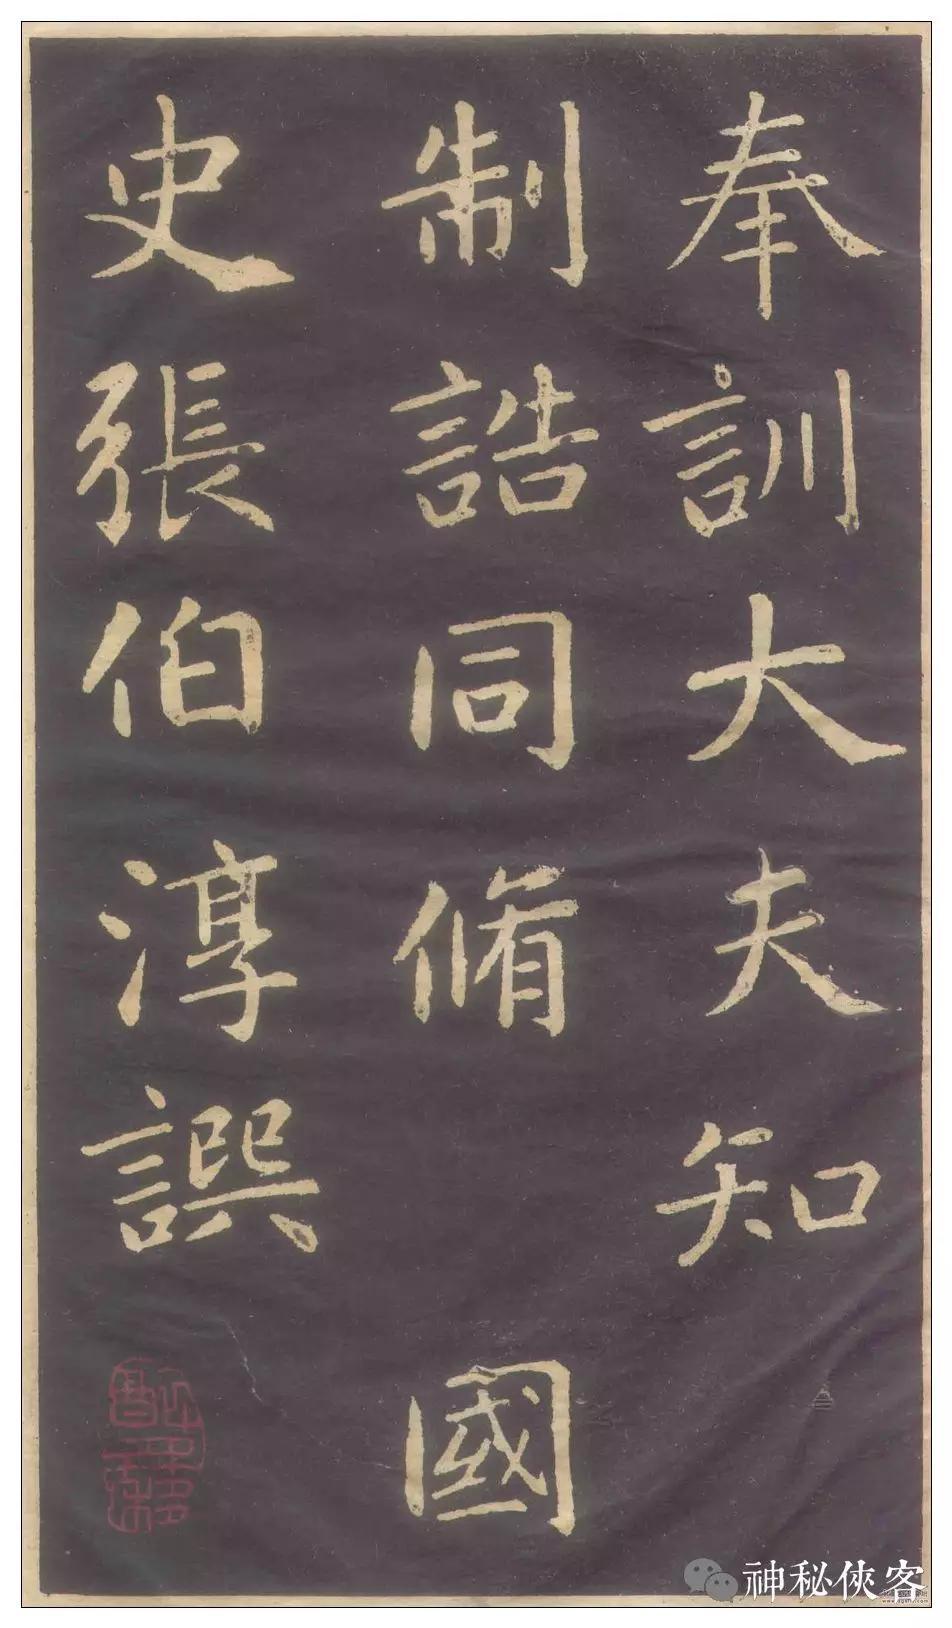 奉訓大夫知
制誥同脩 國
史張伯淳譔
神秘俠客